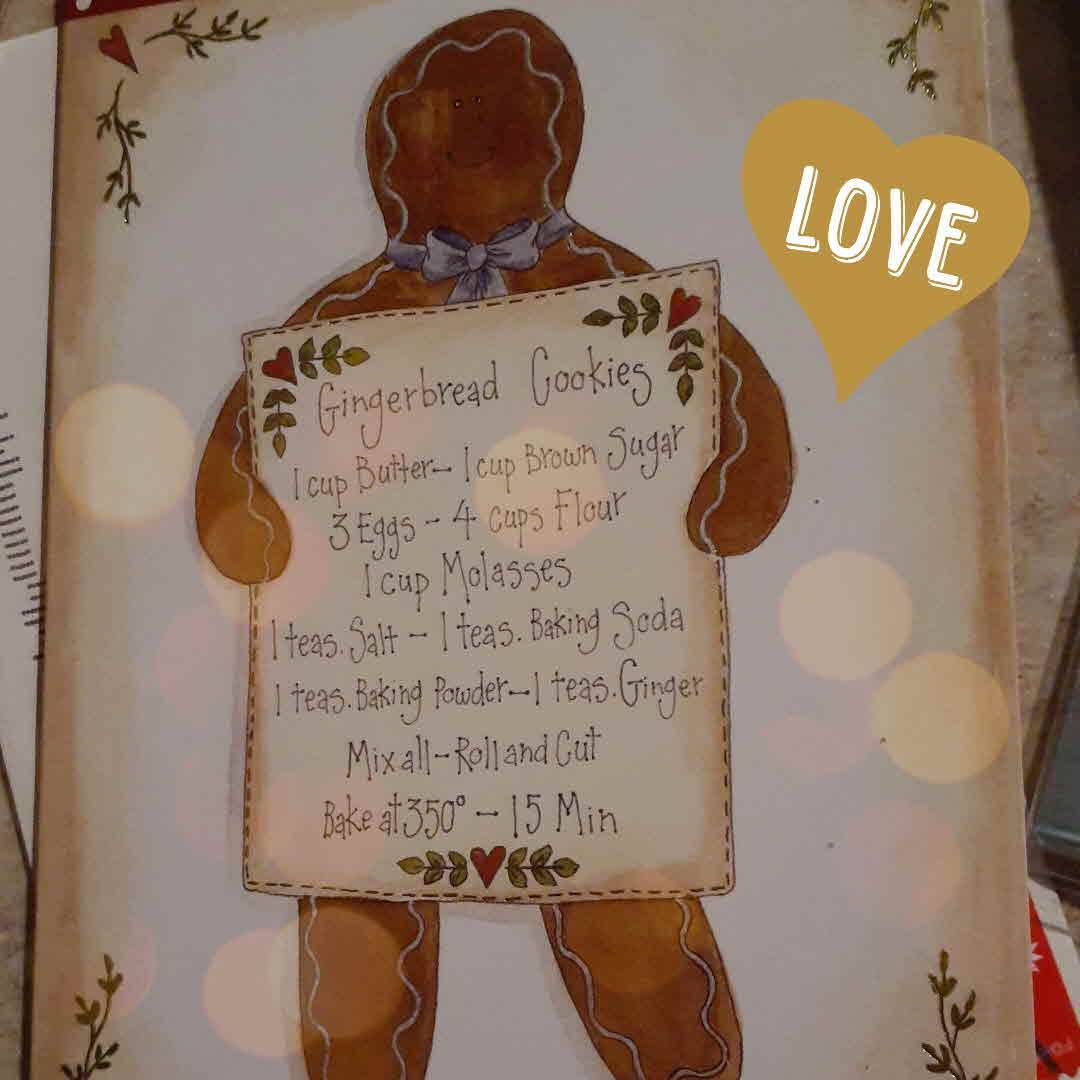 LOVE
Gingerbread Cookies
1 cup Butter- 1 cup Brown Sugar
3 Eggs - 4 cups Flour
1 cup Molasses
1 teas. Salt - 1 teas. Baking Soda
1 teas. Baking Powder-1 teas. Ginger
Mix all-Roll and Cut
Bake at 350° - 15 Min